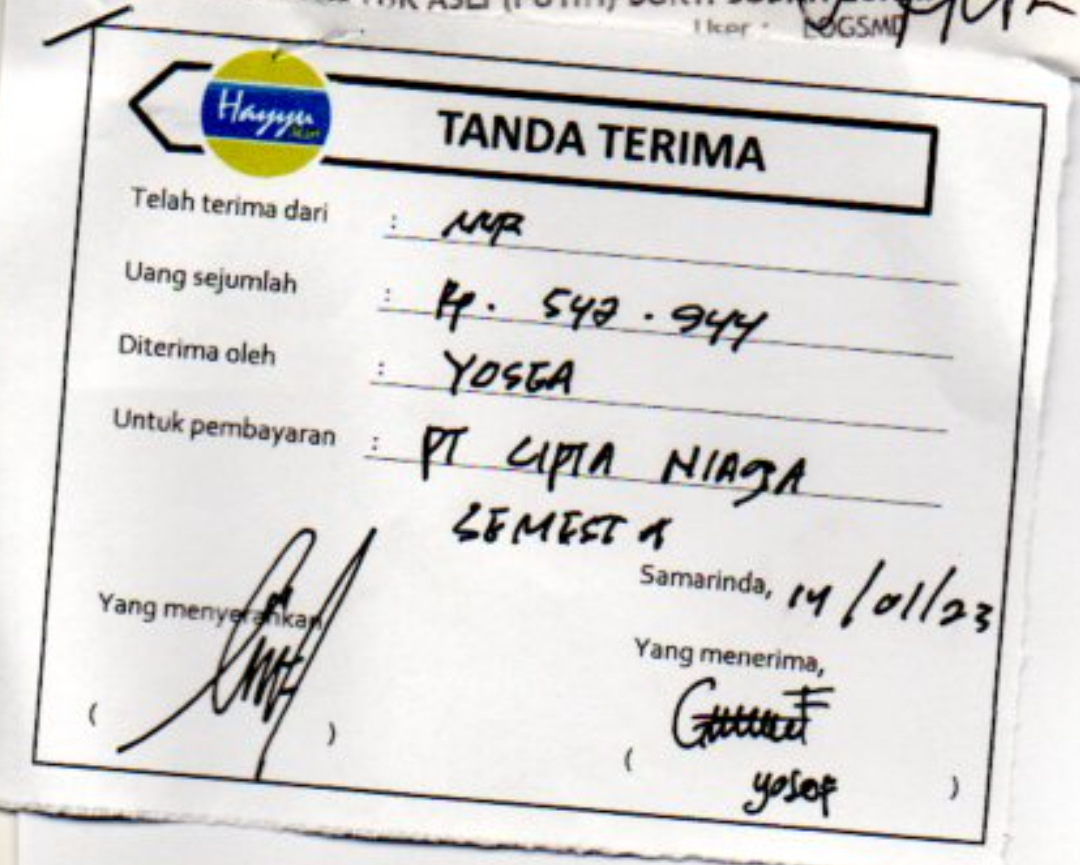 User : LOGSMD
Hayyu
TANDA TERIMA
Telah terima dari : NUR
Uang sejumlah : Rp. 542.944
Diterima oleh : YOSEA
Untuk pembayaran : PT CIPTA NIAGA
SEMESTA
Samarinda, 14/01/23
Yang menyerahkan
Yang menerima,
( ) ( yosef )